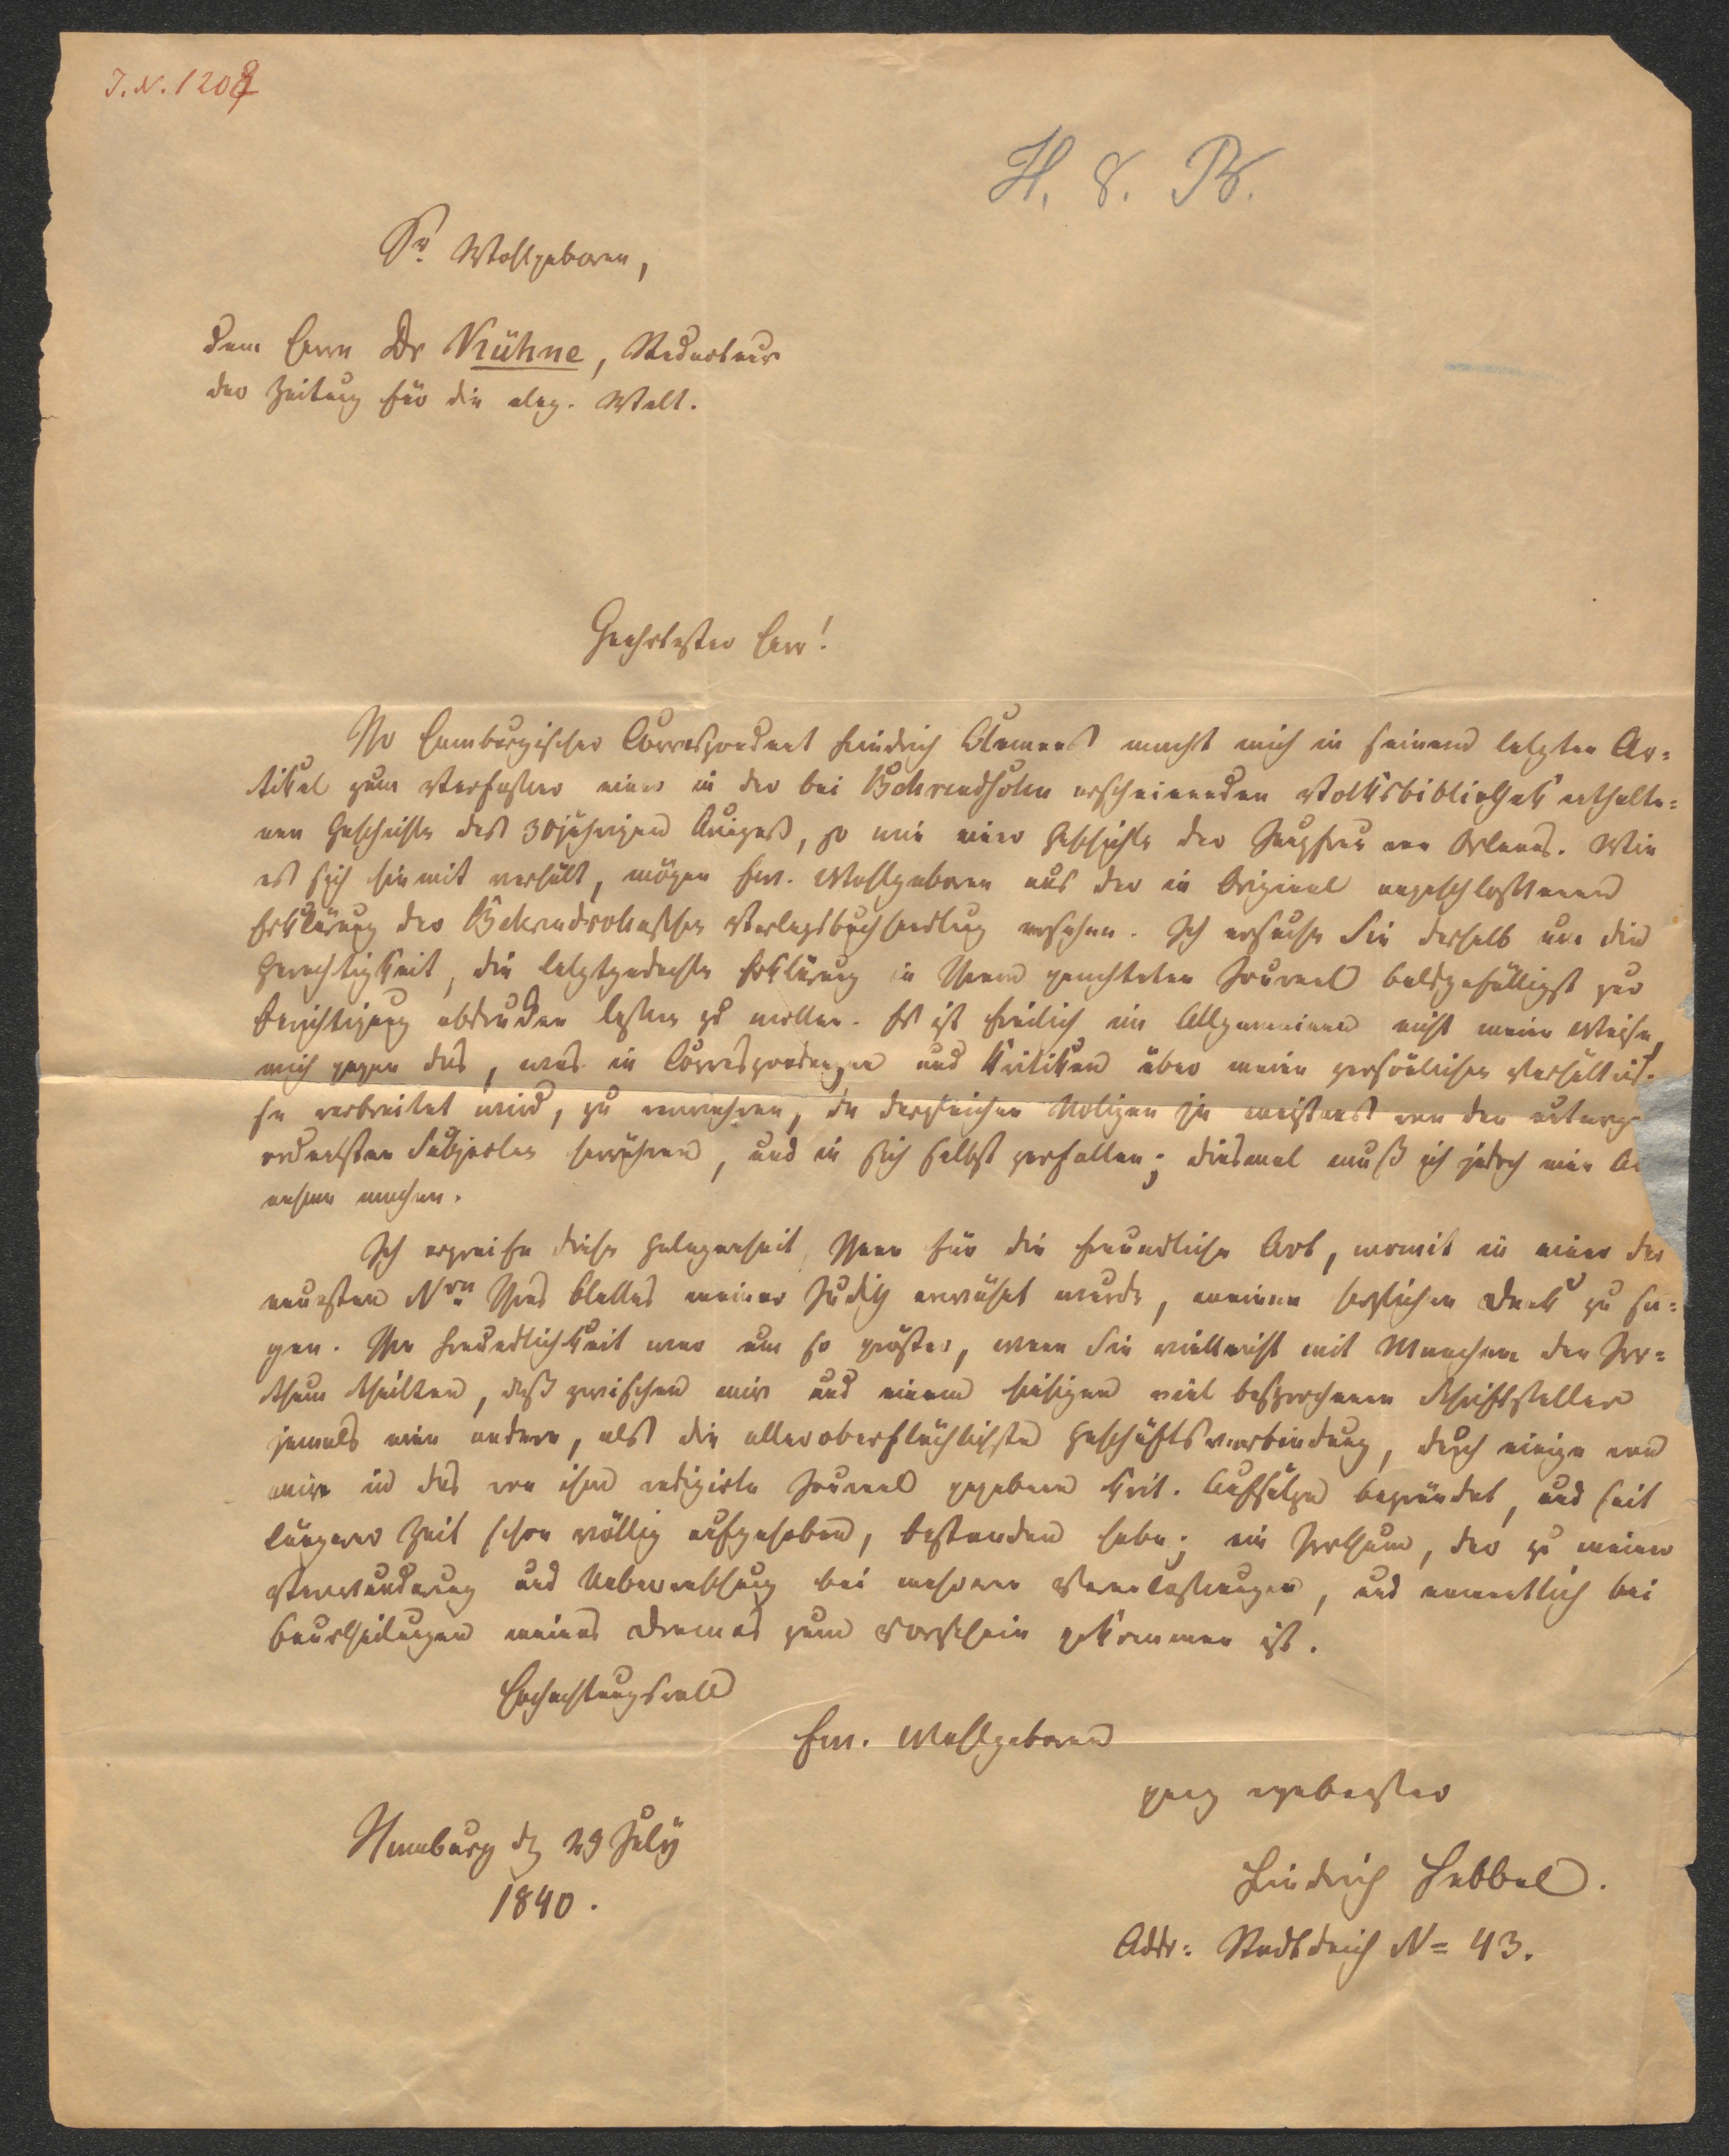 J. N. 1208
H. 8. Br.
Sr Wohlgeboren,
dem Herrn Dr Kühne, Redacteur
der Zeitung für die eleg. Welt.
Geehrtester Herr!
Ihr Hamburgischer Correspondent Friedrich Clemens macht mich in seinem letzten Ar=
tikel zum Verfasser einer in der bei Behrendsohn erscheinenden Volksbibliothek enthalte=
nen Geschichte des 30jährigen Krieges, so wie einer Geschichte der Jungfrau von Orleans. Wie
es sich hiemit verhält, mögen Ew. Wohlgeboren aus der in Original angeschlossenen
Erklärung der Behrendsohnschen Verlagsbuchhandlung ersehen. Ich ersuche Sie deshalb um die
Gerechtigkeit, die letztgedachte Erklärung in Ihrem geachteten Journal baldgefälligst zur
Berichtigung abdrucken lassen zu wollen. Es ist freilich im Allgemeinen nicht meine Weise,
mich gegen das, was in Correspondenzen und Kritiken über meine persönlichen Verhältnis=
se verbreitet wird, zu verwahren, da dergleichen Notizen ja meistens von den unterge
ordnetsten Subjecten herrühren, und in sich selbst zerfallen; diesmal muß ich jedoch eine A
nahme machen.
Ich ergreife diese Gelegenheit, Ihnen für die freundliche Art, womit in einer der
neuesten Nrn Ihres Blattes meiner Judith erwähnt wurde, meinen herzlichen Dank zu sa=
gen. Ihre Freundlichkeit war um so größer, wenn Sie vielleicht mit Manchem den Irr=
thum theilten, daß zwischen mir und einem hiesigen viel besprochenen Schriftsteller
jemals eine andere, als die alleroberflächlichste Geschäftsverbindung, durch einige von
mir in das von ihm redigirte Journal gegebene krit. Aufsätze begründet, und seit
längerer Zeit schon völlig aufgehoben, bestanden habe; ein Irrthum, der zu meiner
Verwunderung und Ueberraschung bei mehreren Veranlassungen, und namentlich bei
Beurtheilungen meines Dramas zum Vorschein gekommen ist.
Hochachtungsvoll
Ew. Wohlgeboren
ganz ergebenster
Friedrich Hebbel.
Hamburg d 29 July
1840.
Addr: Stadtdeich N= 43.